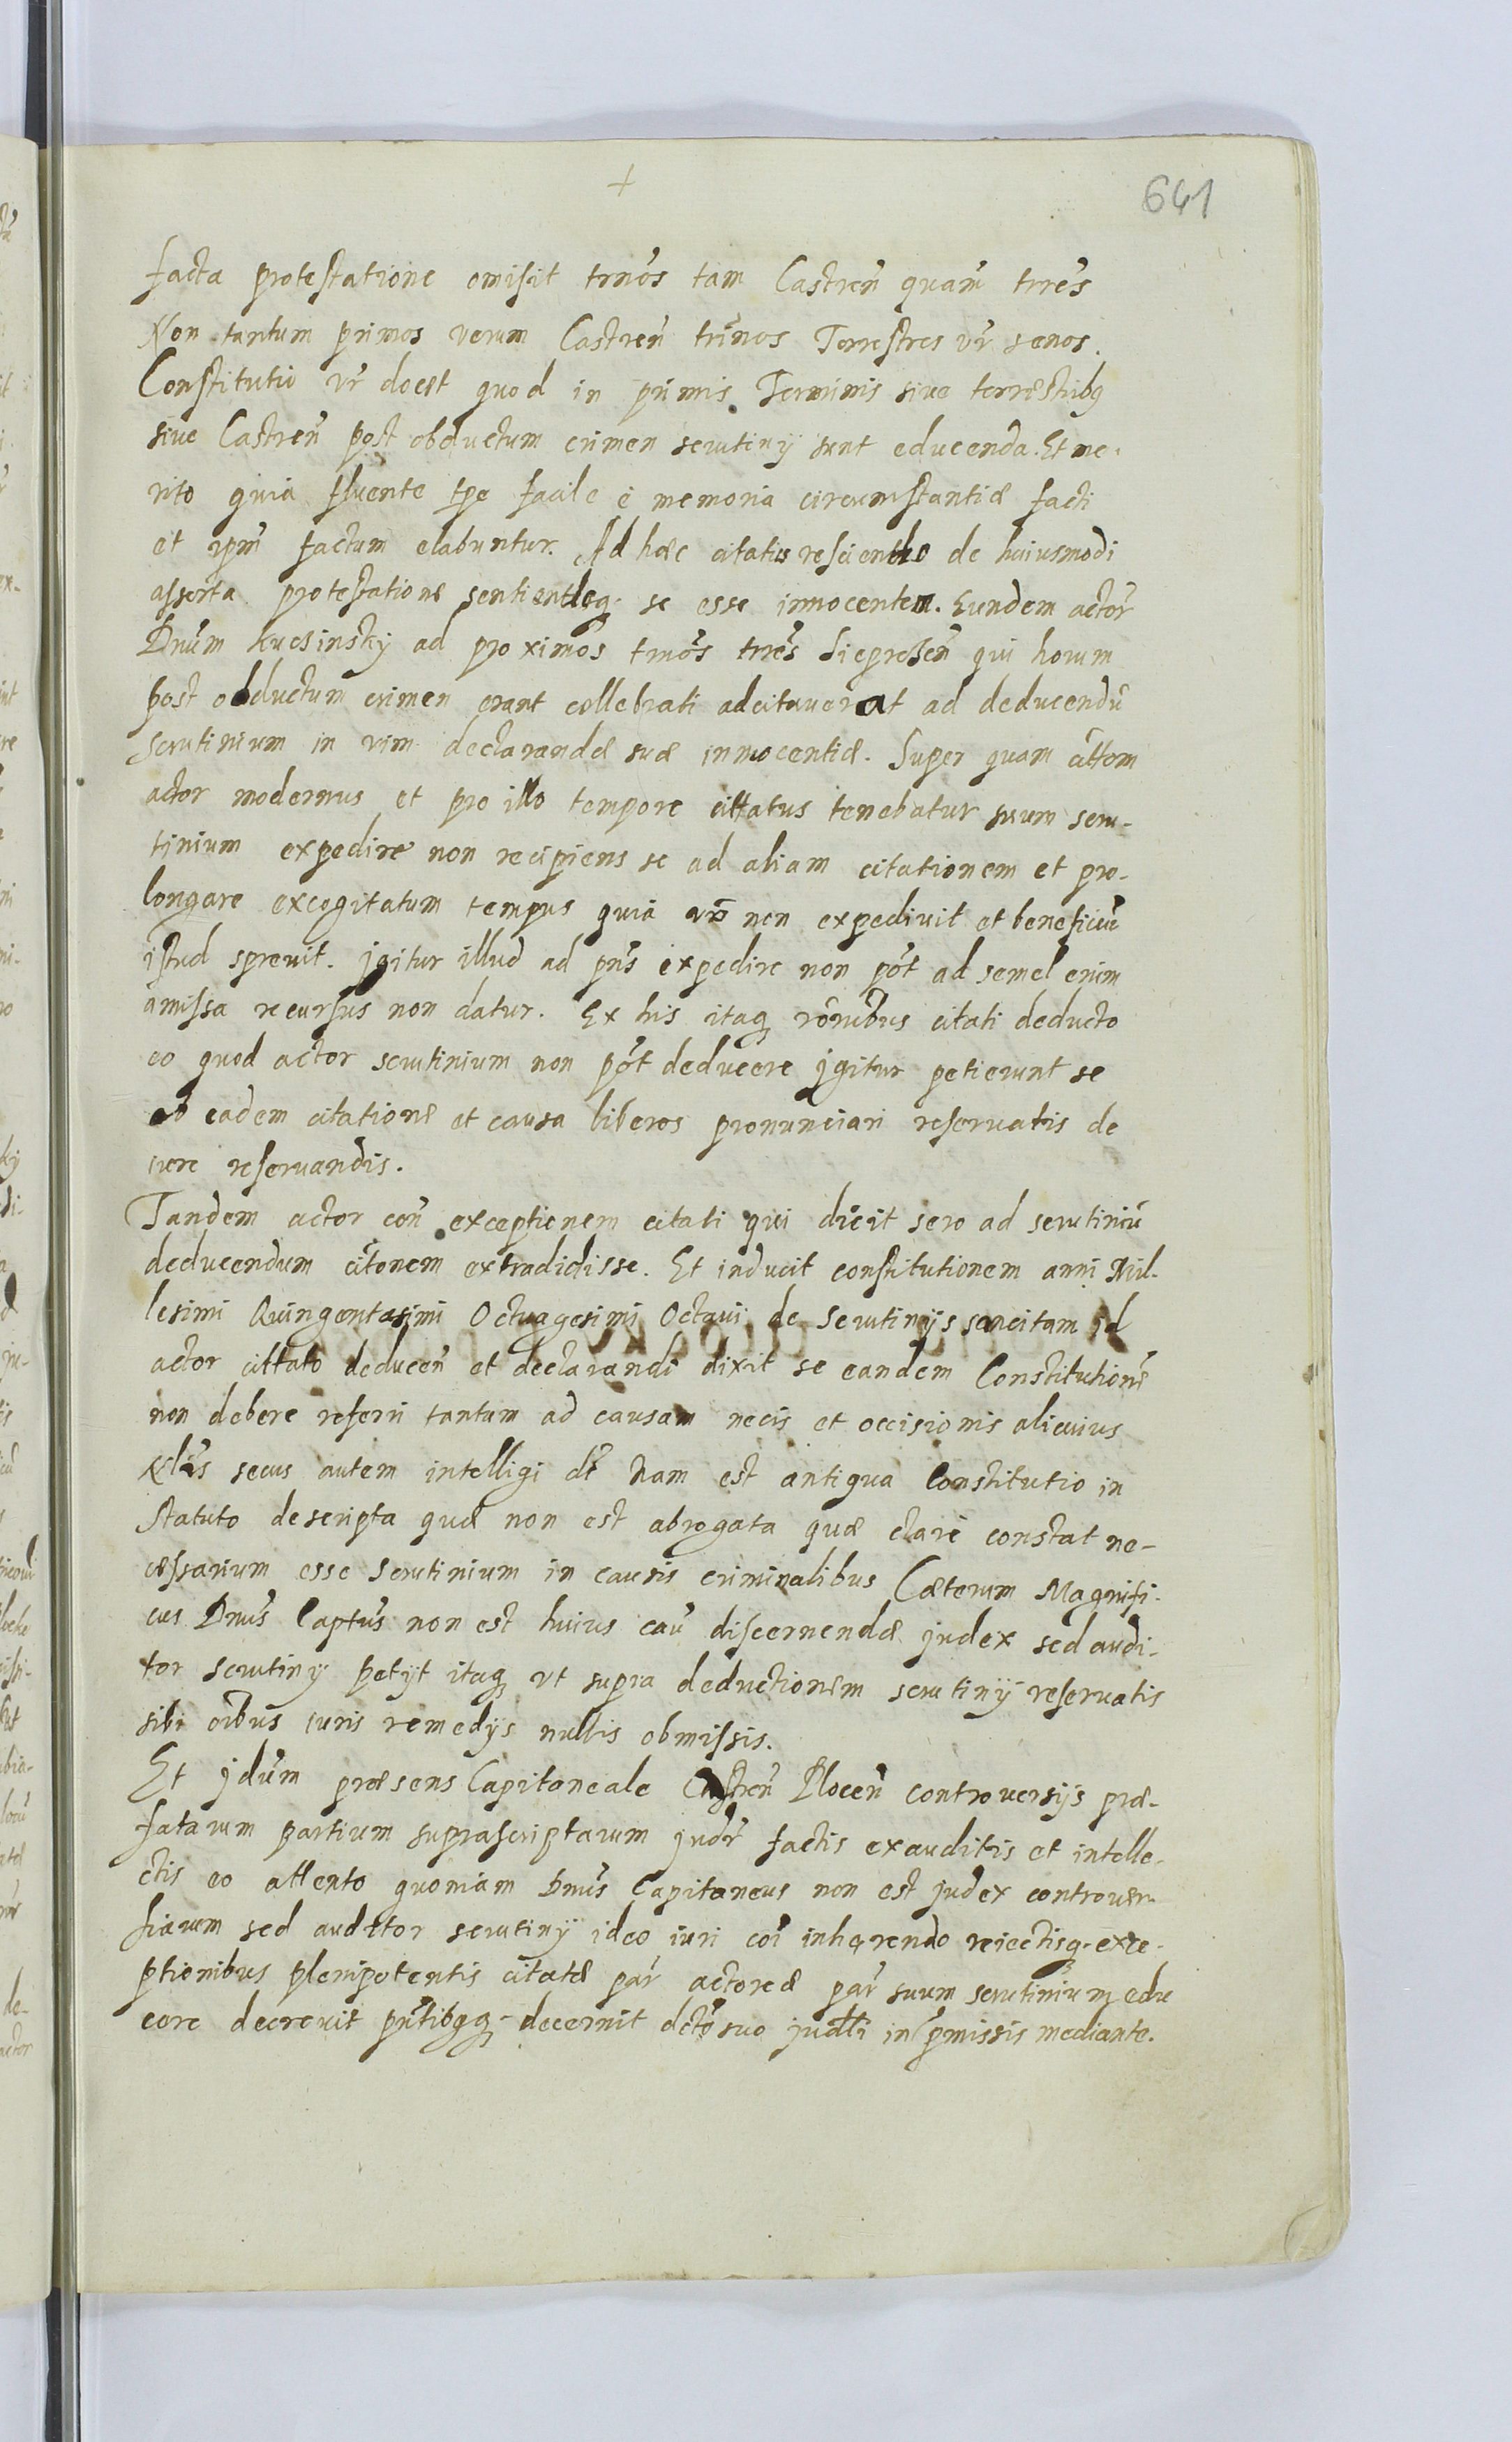 +
641
facta protestatione omisit trnõs tam Castreñ quam̃ trrẽs
Non tantum primos verum Castreñ trinos Terrestres vr̃ senos.
Constitutio vr̃ docet quod in primis Terminis siue terrestribq
siue Castreñ post obductum crimen scrutiny sunt educenda. Et me-
rito quia fluente tpe facile e memoria circumstantiæ facti
et ipm̃ factum elabuntur. Ad hæc citatus de huiusmodi
asserta protestatione se esse innocentem. Eundem actor̃
Dnũm Kucsinsky ad proximos trnõs trrẽs qui horum
post obductum crimen erant cellebrati adcitauerat ad deducendũ
scrutinium in vim declarandæ suæ innocentiæ. Super quam
actor modernus et pro illo tempore cittatus tenebatur suum scru-
tinium expedire non recipiens se ad aliam citationem et pro-
longare excogitatum tempus quia vr̃o non expediuit et beneficiũ
istud spreuit. Igitur illud ad pñs expedire non põt ad semel enim
amissa recursus non datur. Ex his itaq rõnibus citati deducto
eo quod actor scrutinium non põt deducere igitur petierunt se
ab eadem citatione et causa liberos pronunciari reseruatis de
iure reseruandis.
Tandem actor coñ exceptionem citati qui dicit sero ad scrutiniũ
deducendum citõnem extradidisse. Et inducit constitutionem anni Mil-
lesimi Quingentesimi Octuagesimi Octaui de scrutinijs sancitam id
actor cittato deduceñ et declarandi dixit se eandem Constitutionẽ
non debere referri tantum ad causam necis et occisionis alicuius
secus autem intelligi dt̃ Nam est antiqua Constitutio in
Statuto descripta quæ non est abrogata quæ clare constat ne-
cessarium esse Scrutinium in causis criminalibus Cæterum Magnifi-
cus Dnũs Captũs non est huius caũ discernendæ judex sed audi-
tor scrutiny petijt itaq vt supra deductionem scrutinij reseruatis
sibi oĩbus iuris remedijs nullis obmissis.
Et Jdũm præsens Capitaneale Castreñ Ploceñ controuersijs præ-
fatarum partium suprascriptarum judr̃ factis exauditis et intelle-
ctis eo attento quoniam Dnũs Capitaneus non est judex controuer-
siarum sed auditor scrutinij ideo iuri coĩ inhærendo reiectisq exce-
ptionibus plenipotentis citatæ par̃ actoreæ par̃ suum scrutinium edu
cere decreuit pñtibqq decernit dctõ suo in pmissis mediante.